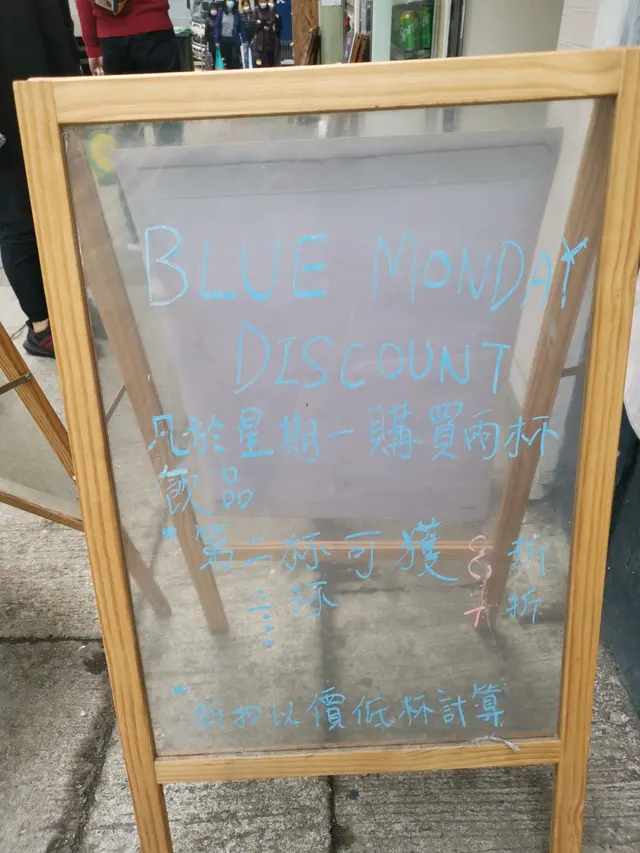 BLUE MONDAY
DISCOUNT
凡於星期一購買兩杯
飲品
*第二杯可獲8折
三杯 7折
*折扣以價低杯計算